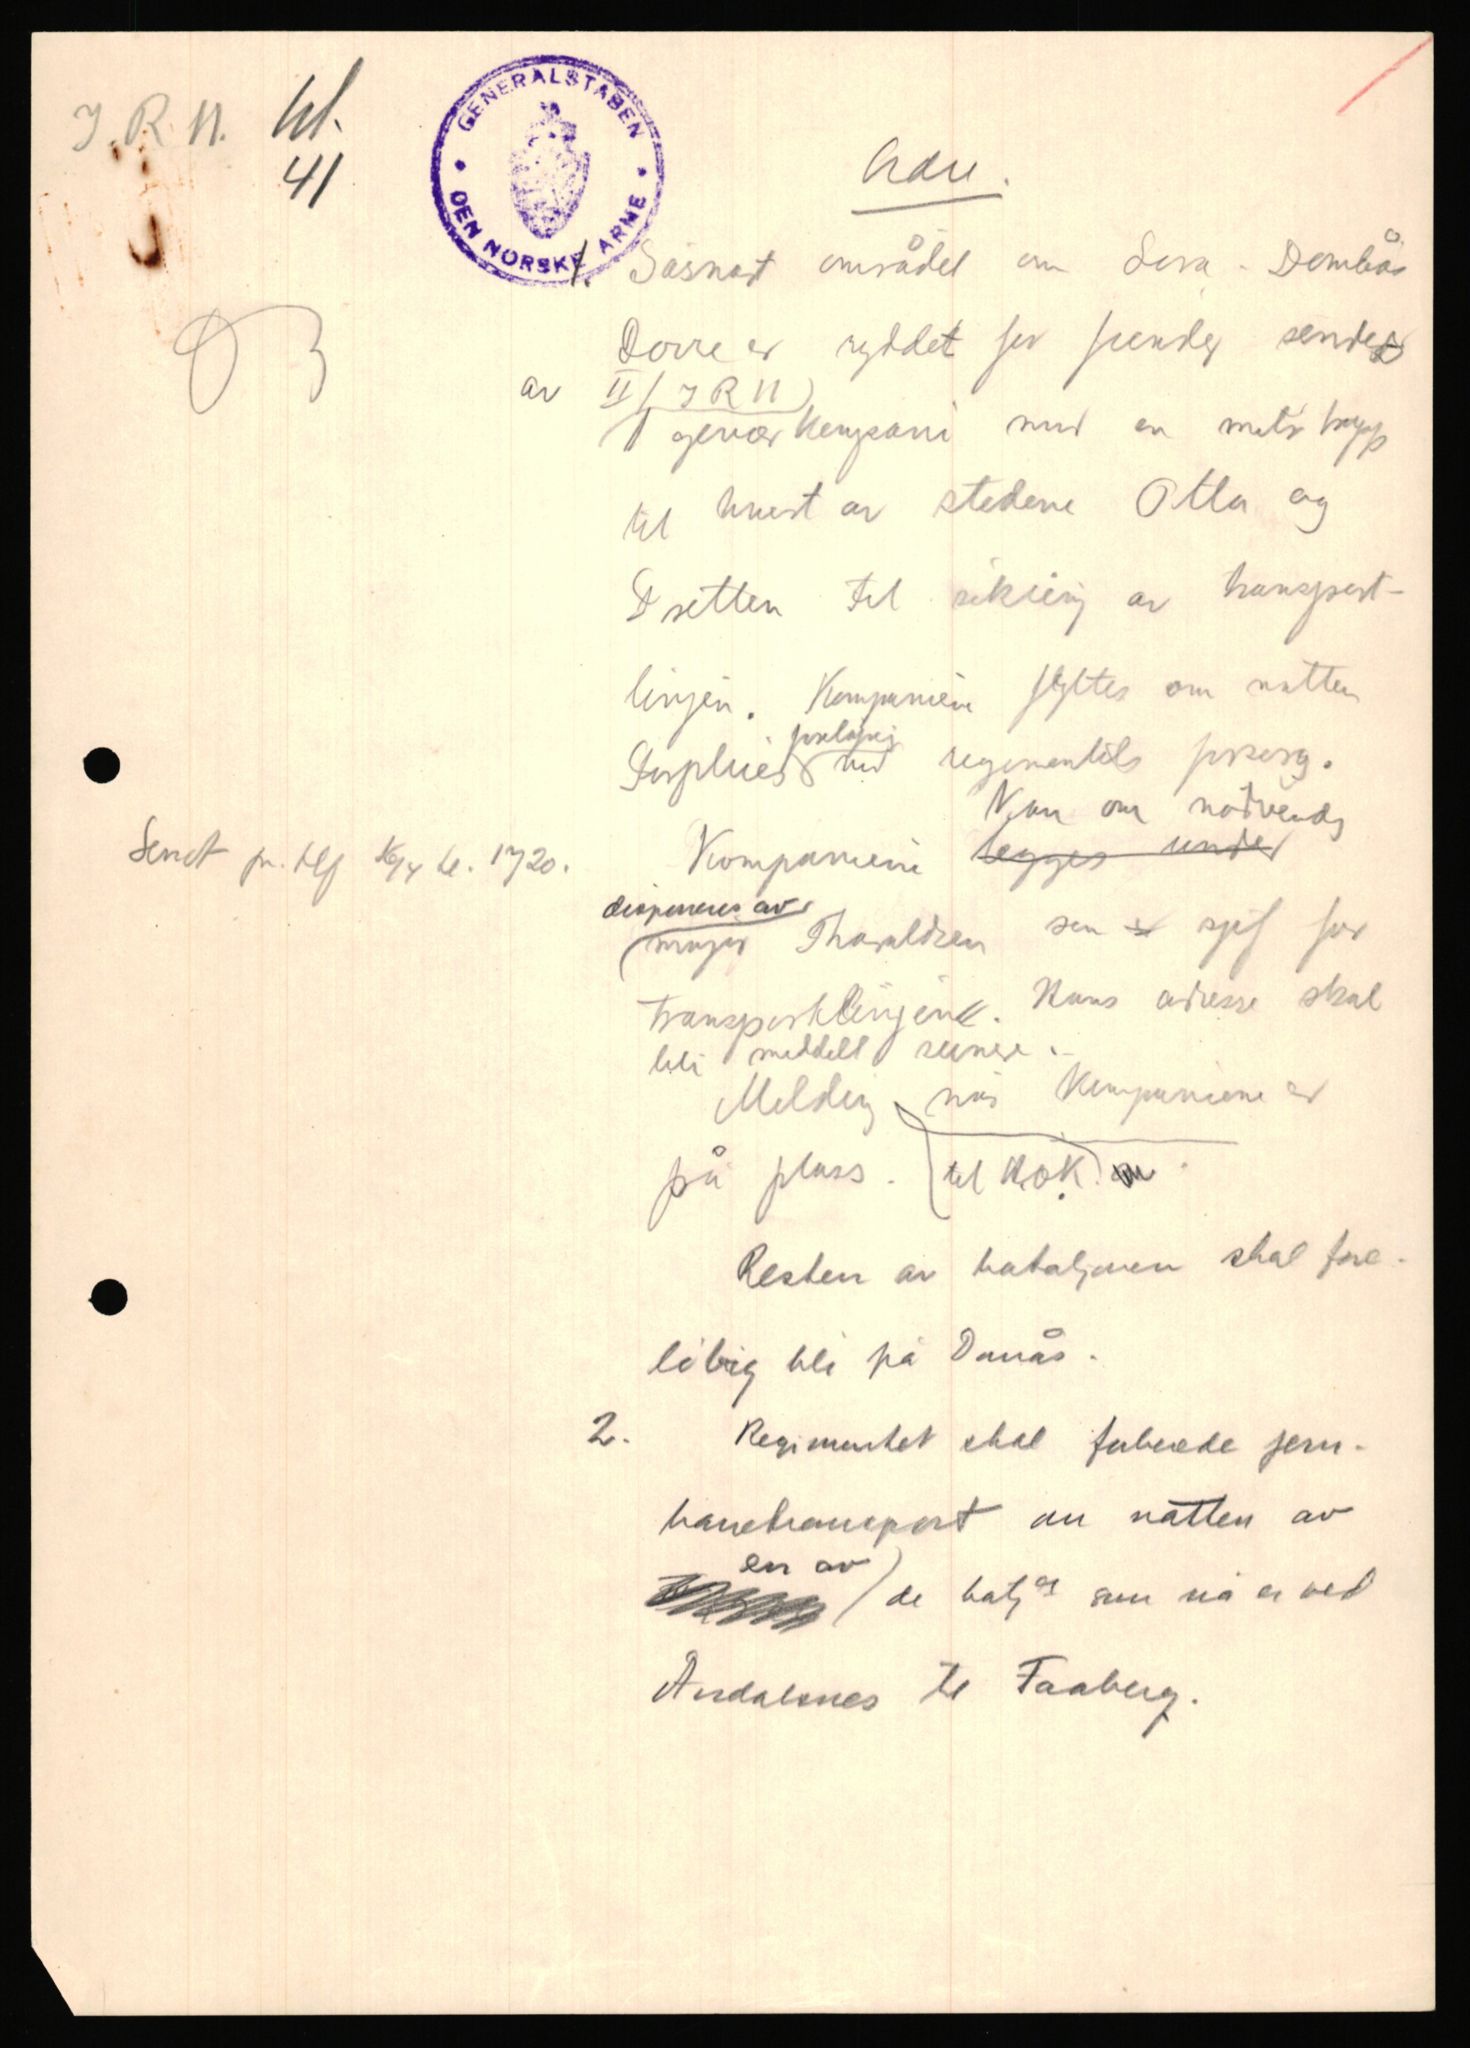 I. R. 11. kl.
41
GENERALSTABEN
DEN NORSKE ARME
Ordre.
1. Såsnart området om Lora - Dombås
Dovre er ryddet for fiender sendes
av II/IR 11
1 geværkompani med en mitr tropp
til hvert av stedene Otta og
Dretten til sikring av transport-
linjen. Kompaniene flyttes om natten
foreløpig
Forpleies ved regimentets forsorg.
Kan om nødvendig
Sendt pr. tlf 16/4 kl. 1720.
Kompaniene legges under
disponeres av
major Tharaldsen som er sjef for
transportlinjene. Hans adresse skal
bli meddelt seinere.
Melding når kompaniene er
på plass. til H.O.K.
Resten av bataljonen skal fore-
löbig bli på Dombås.
2. Regimentet skal forberede jern-
banetransport om natten av
en av
de batj. som nå er ved
Åndalsnes til Faaberg.